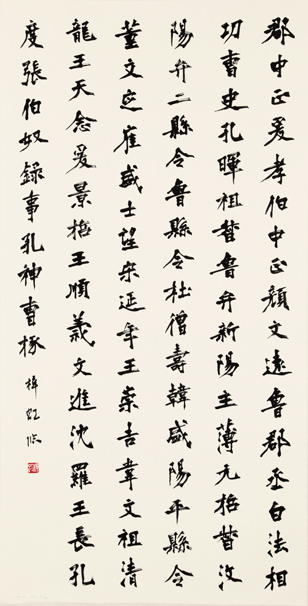 郡中正爰孝伯中正顏文遠魯郡丞白法相
功曹史孔暉祖督魯弁新陽主薄元拾督汶
陽弁二縣令魯縣令杜僧壽韓盛陽平縣令
董文定崔盛士望宋延年王崇吉韋文祖清
龍王天念爰景拾王順義文進沈羅王長孔
度張伯奴錄事孔神曹